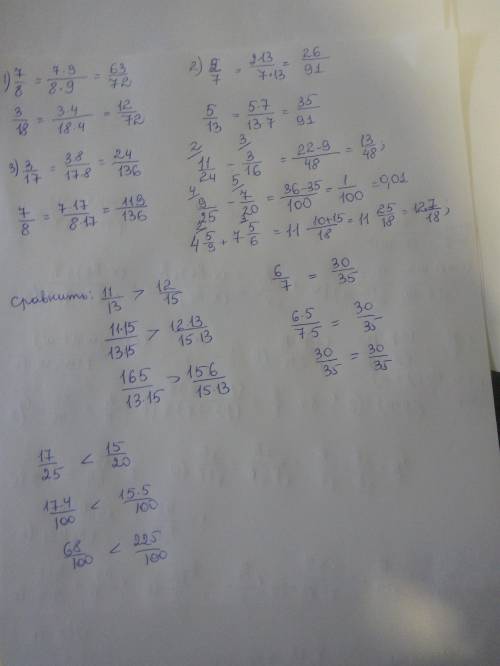 1) 7/8 = 7·9/8·9 = 63/72
3/18 = 3·4/18·4 = 12/72
3) 3/17 = 3·8/17·8 = 24/136
7/8 = 7·17/8·17 = 119/136
2) 2/7 = 2·13/7·13 = 26/91
5/13 = 5·7/13·7 = 35/91
11/24 - 3/16 = 22-9/48 = 13/48;
9/25 - 7/20 = 36-35/100 = 1/100 = 0,01
4 5/9 + 7 5/6 = 11 10+15/18 = 11 25/18 = 12 7/18;
Сравнить: 11/13 > 12/15
11·15/13·15 > 12·13/15·13
165/13·15 > 156/15·13
6/7 = 30/35
6·5/7·5 = 30/35
30/35 = 30/35
17/25 < 15/20
17·4/100 < 15·5/100
68/100 < 225/100